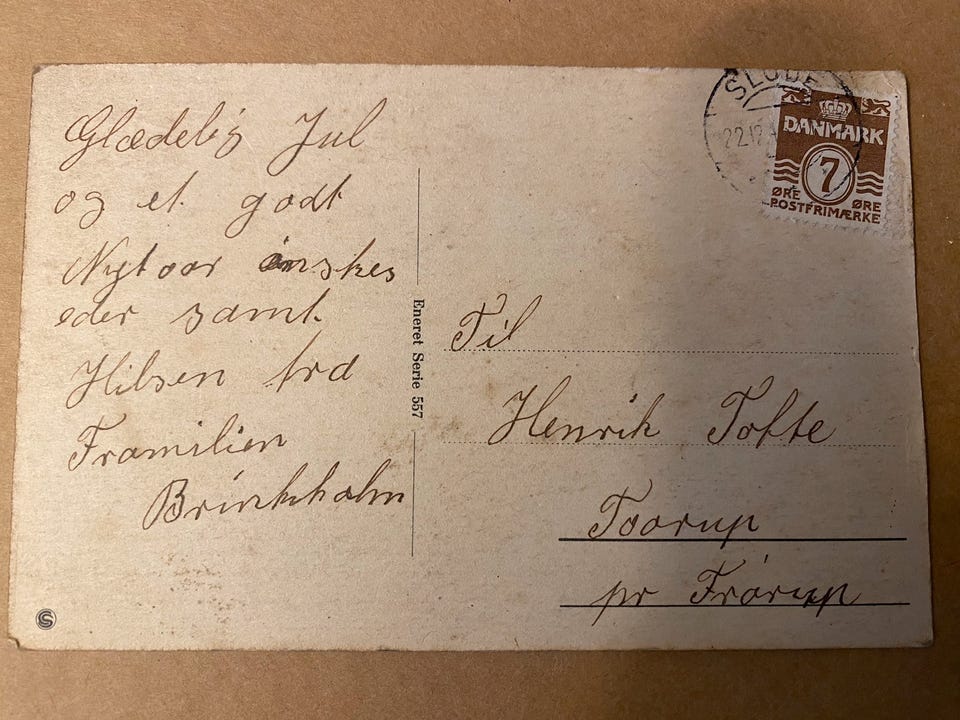 Glædelig Jul
og et godt
Nytaar ønskes
eder samt
Hilsen fra
Framilien
Brinkholm
Eneret Serie 557
SLUDE
22.12
DANMARK
7
ØRE ØRE
POSTFRIMÆRKE
Til
Henrik Tofte
Taarup
pr Frørup
S